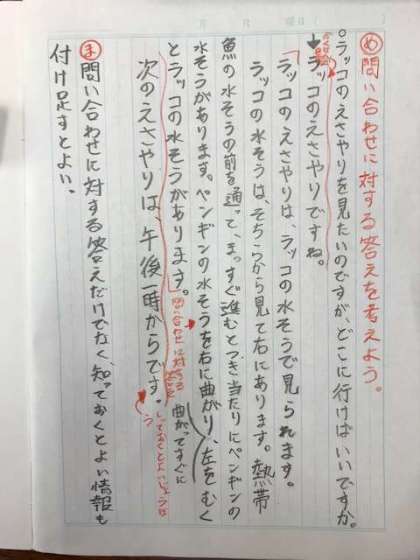 め 問い合わせに対する答えを考えよう。
○ラッコのえさやりを見たいのですが、どこに行けばいいですか。
ラッコのえさやりですね。
「ラッコのえさやりは、ラッコの水そうで見られます。
ラッコの水そうは、そちらから見て右にあります。熱帯
魚の水そうの前を通って、まっすぐ進むとつき当たりにペンギンの
水そうがあります。ペンギンの水そうを右に曲がり、左をむく
曲がってすぐに
とラッコの水そうがあります。」
問い合わせに対する
次のえさやりは、午後一時からです。
しっておくとよいじょうほう
ま 問い合わせに対する答えだけでなく、知っておくとよい情報も
付け足すとよい。